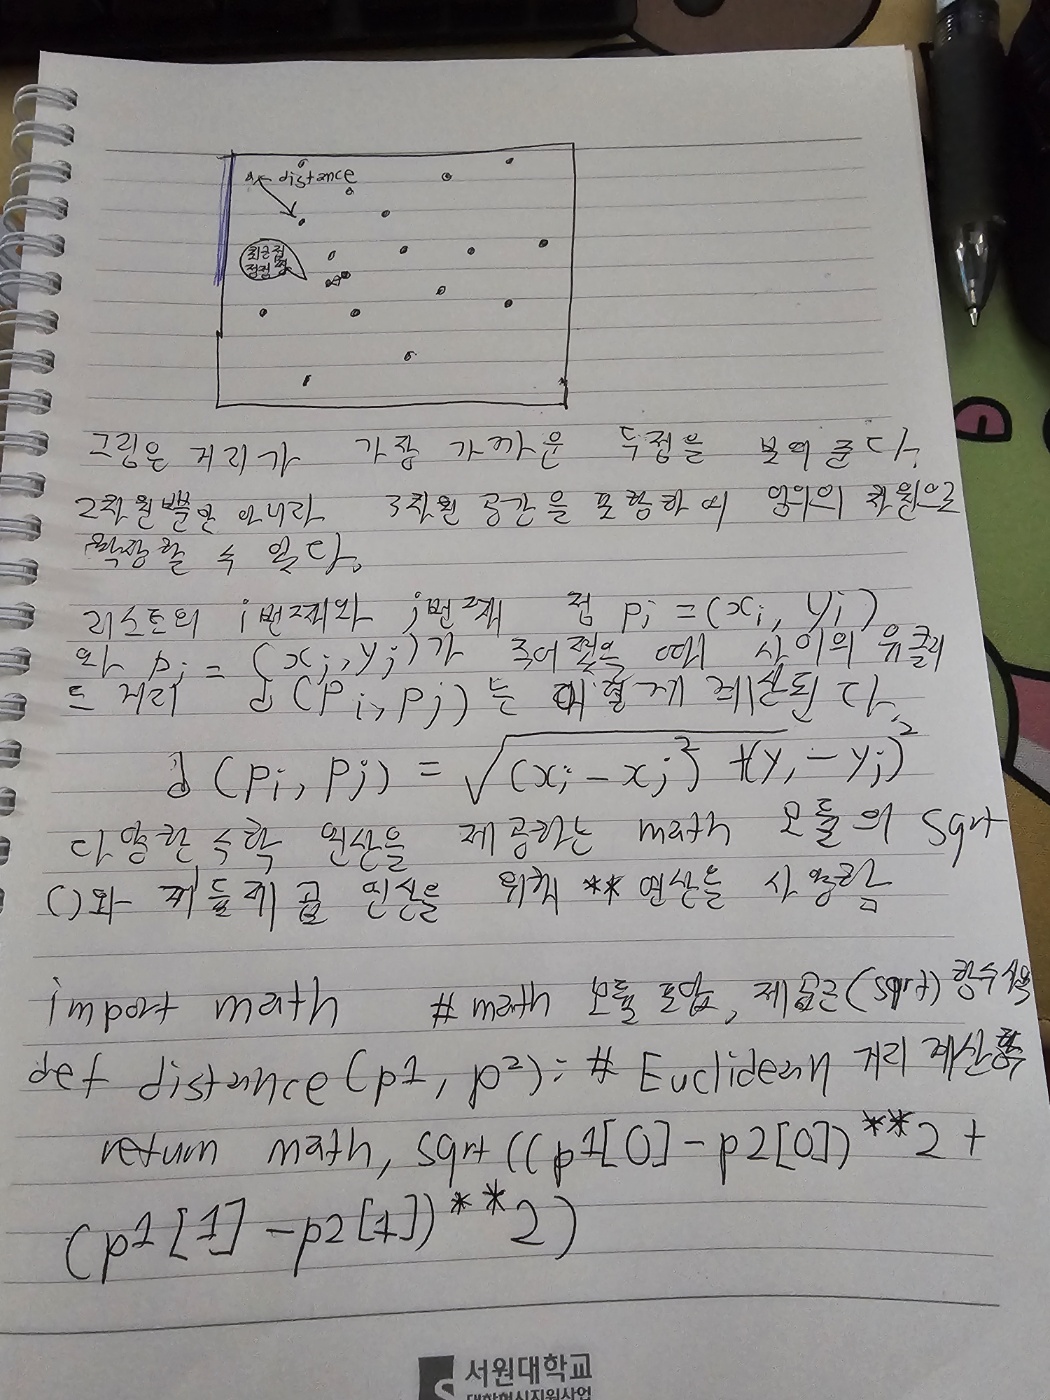 distance
최근접
점점 쌍
그림은 거리가 가장 가까운 두점을 보여 준다.
2차원뿐만 아니라 3차원 공간을 포함하여 임의의 차원으로
확장할 수 있다.
리스트의 i번째와 j번째 점 pi = (xi, yi)
와 pj = (xj, yj)가 주어졌을 때 사이의 유클리
드 거리 d(pi, pj)는 이렇게 계산된다.
d (pi, pj) = √(xi - xj)² + (yi - yj)²
다양한 수학 연산을 제공하는 math 모듈의 sqrt
()와 거듭제곱 연산을 위해 ** 연산을 사용함
import math # math 모듈 포함, 제곱근(sqrt) 함수 사용
def distance(p1, p2): # Euclidean 거리 계산 함수
return math, sqrt((p1[0] - p2[0])**2 +
(p1[1] - p2[1])**2)
서원대학교
대학혁신지원사업